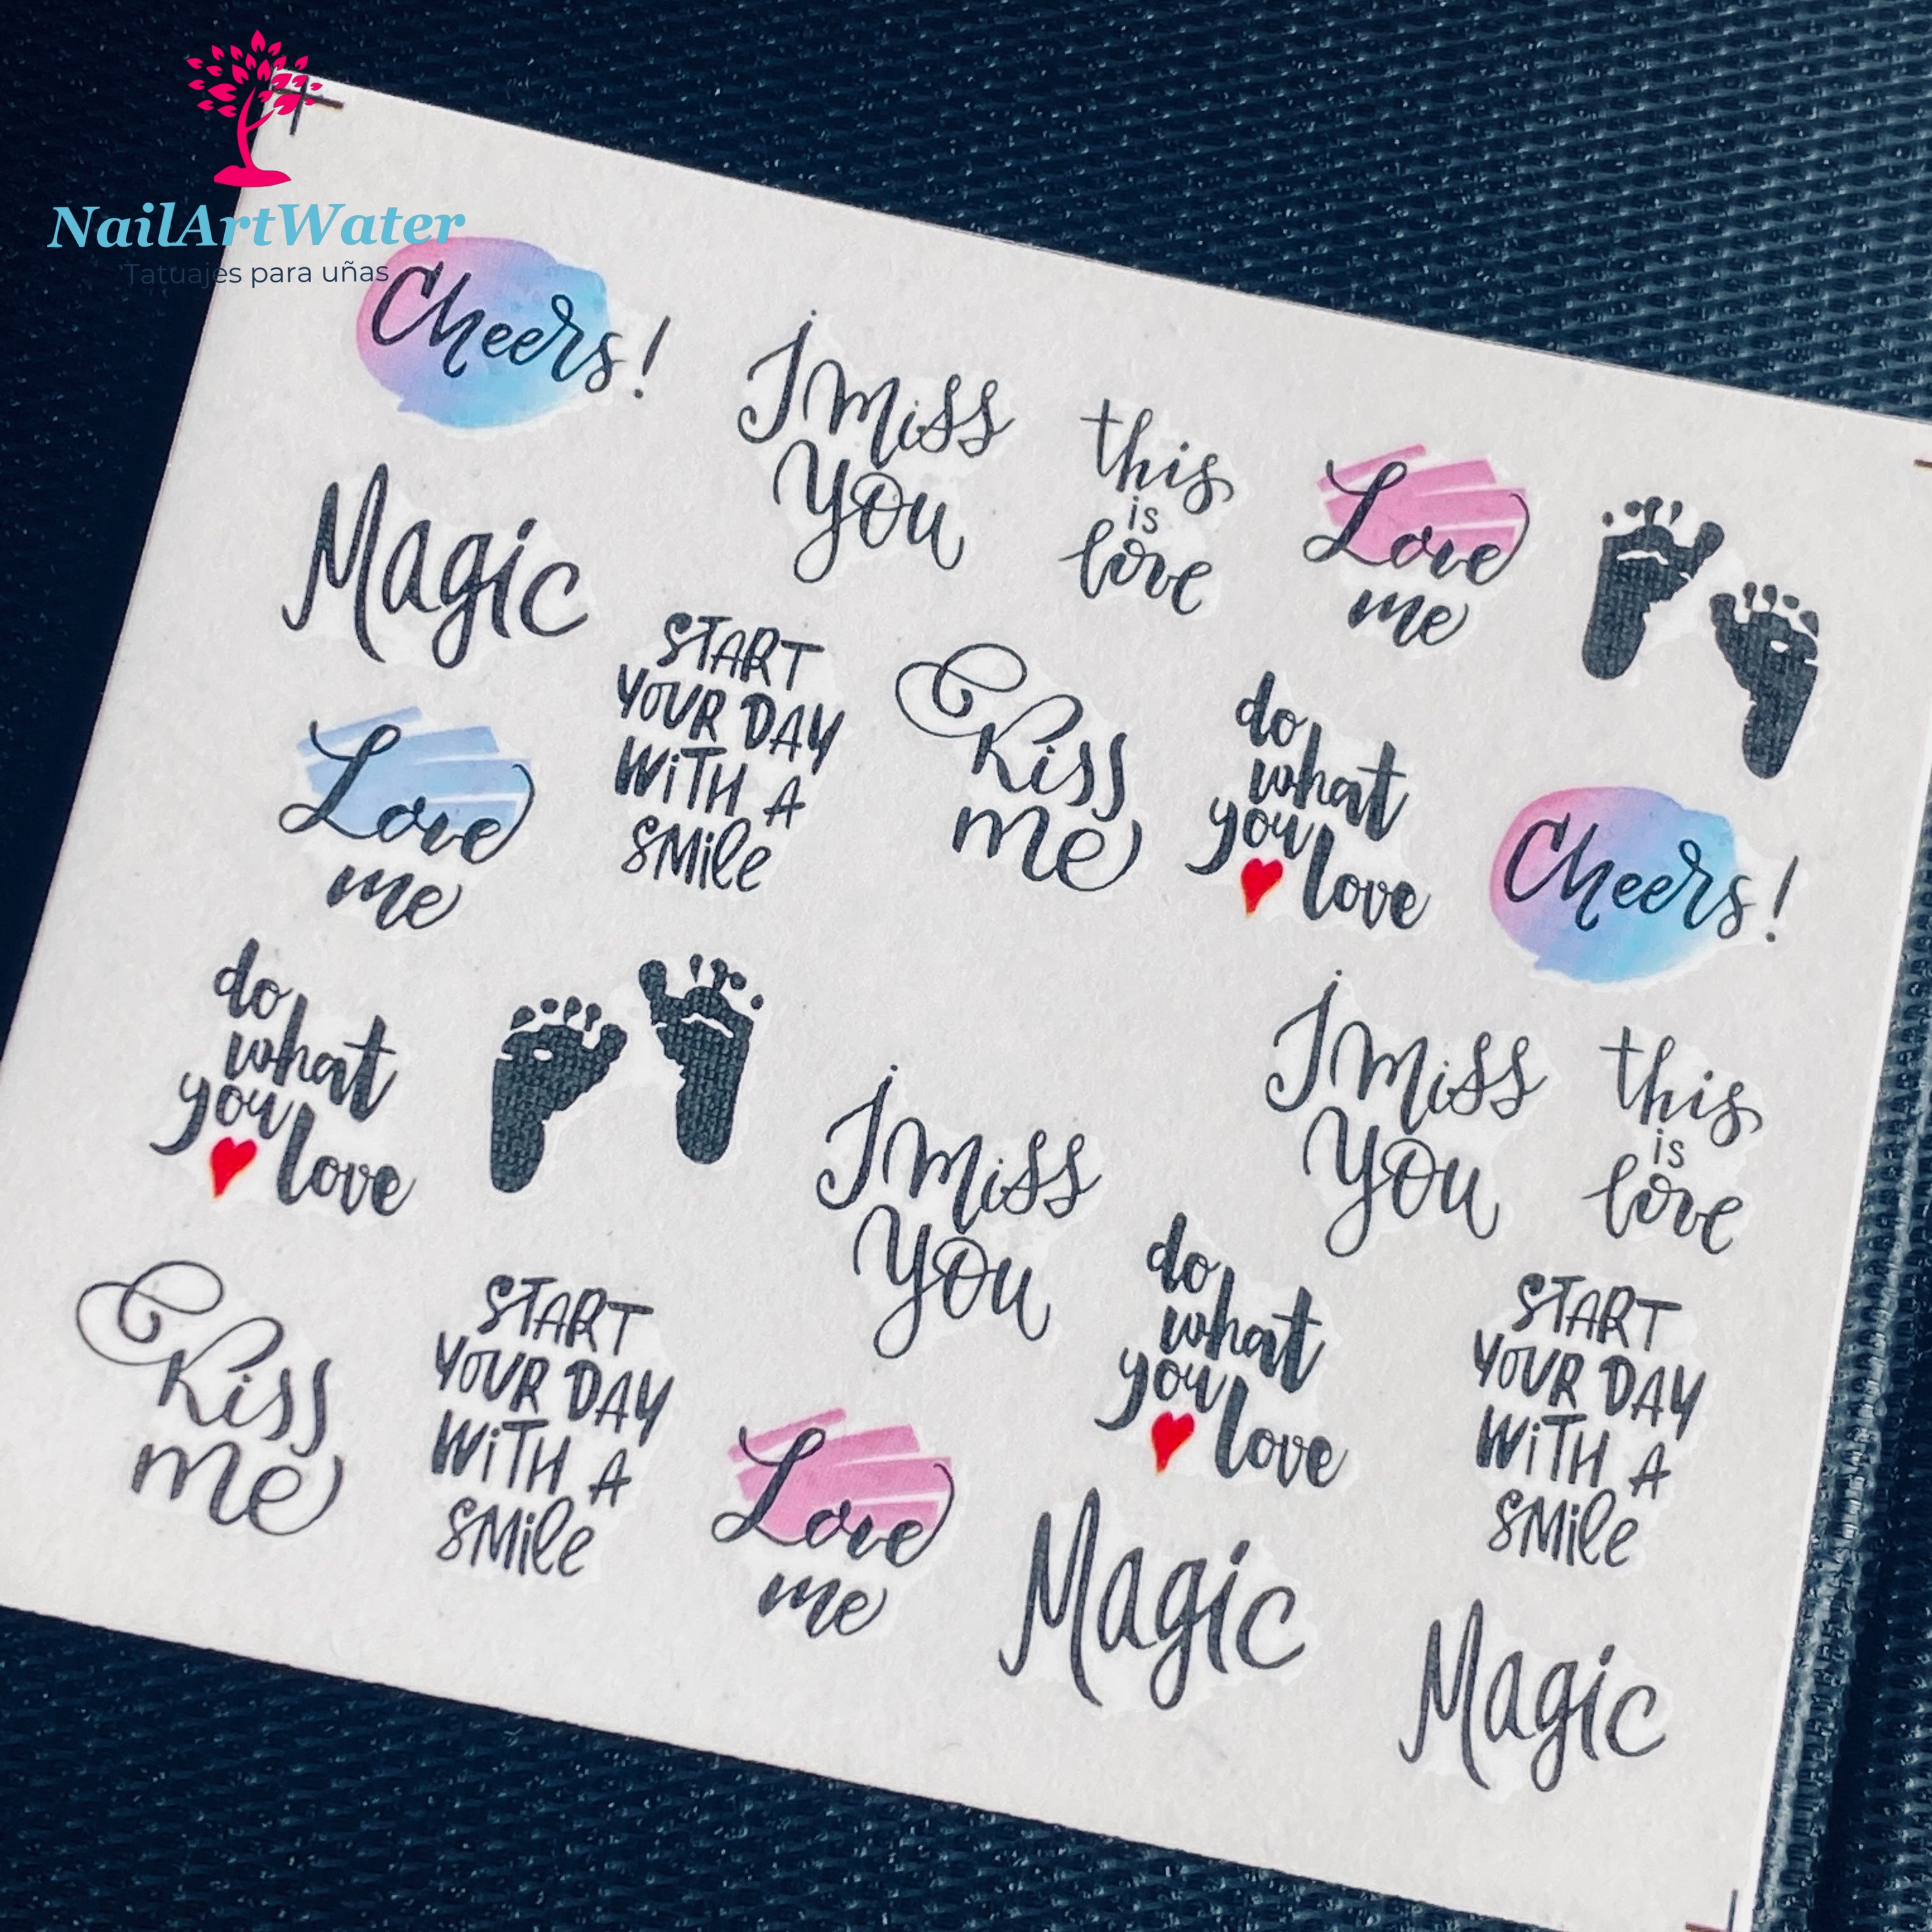 NailArtWater
Tatuajes para uñas
Cheers!
I Miss
You
this
is
love
Love
me
Magic
START
YOUR DAY
WiTH A
SMile
Kiss
me
do
what
you
love
Cheers!
Love
me
do
what
you
love
I Miss
You
I Miss
You
this
is
love
Kiss
me
START
YOUR DAY
WiTH A
SMile
Love
me
do
what
you
love
START
YOUR DAY
WiTH A
SMile
Magic
Magic